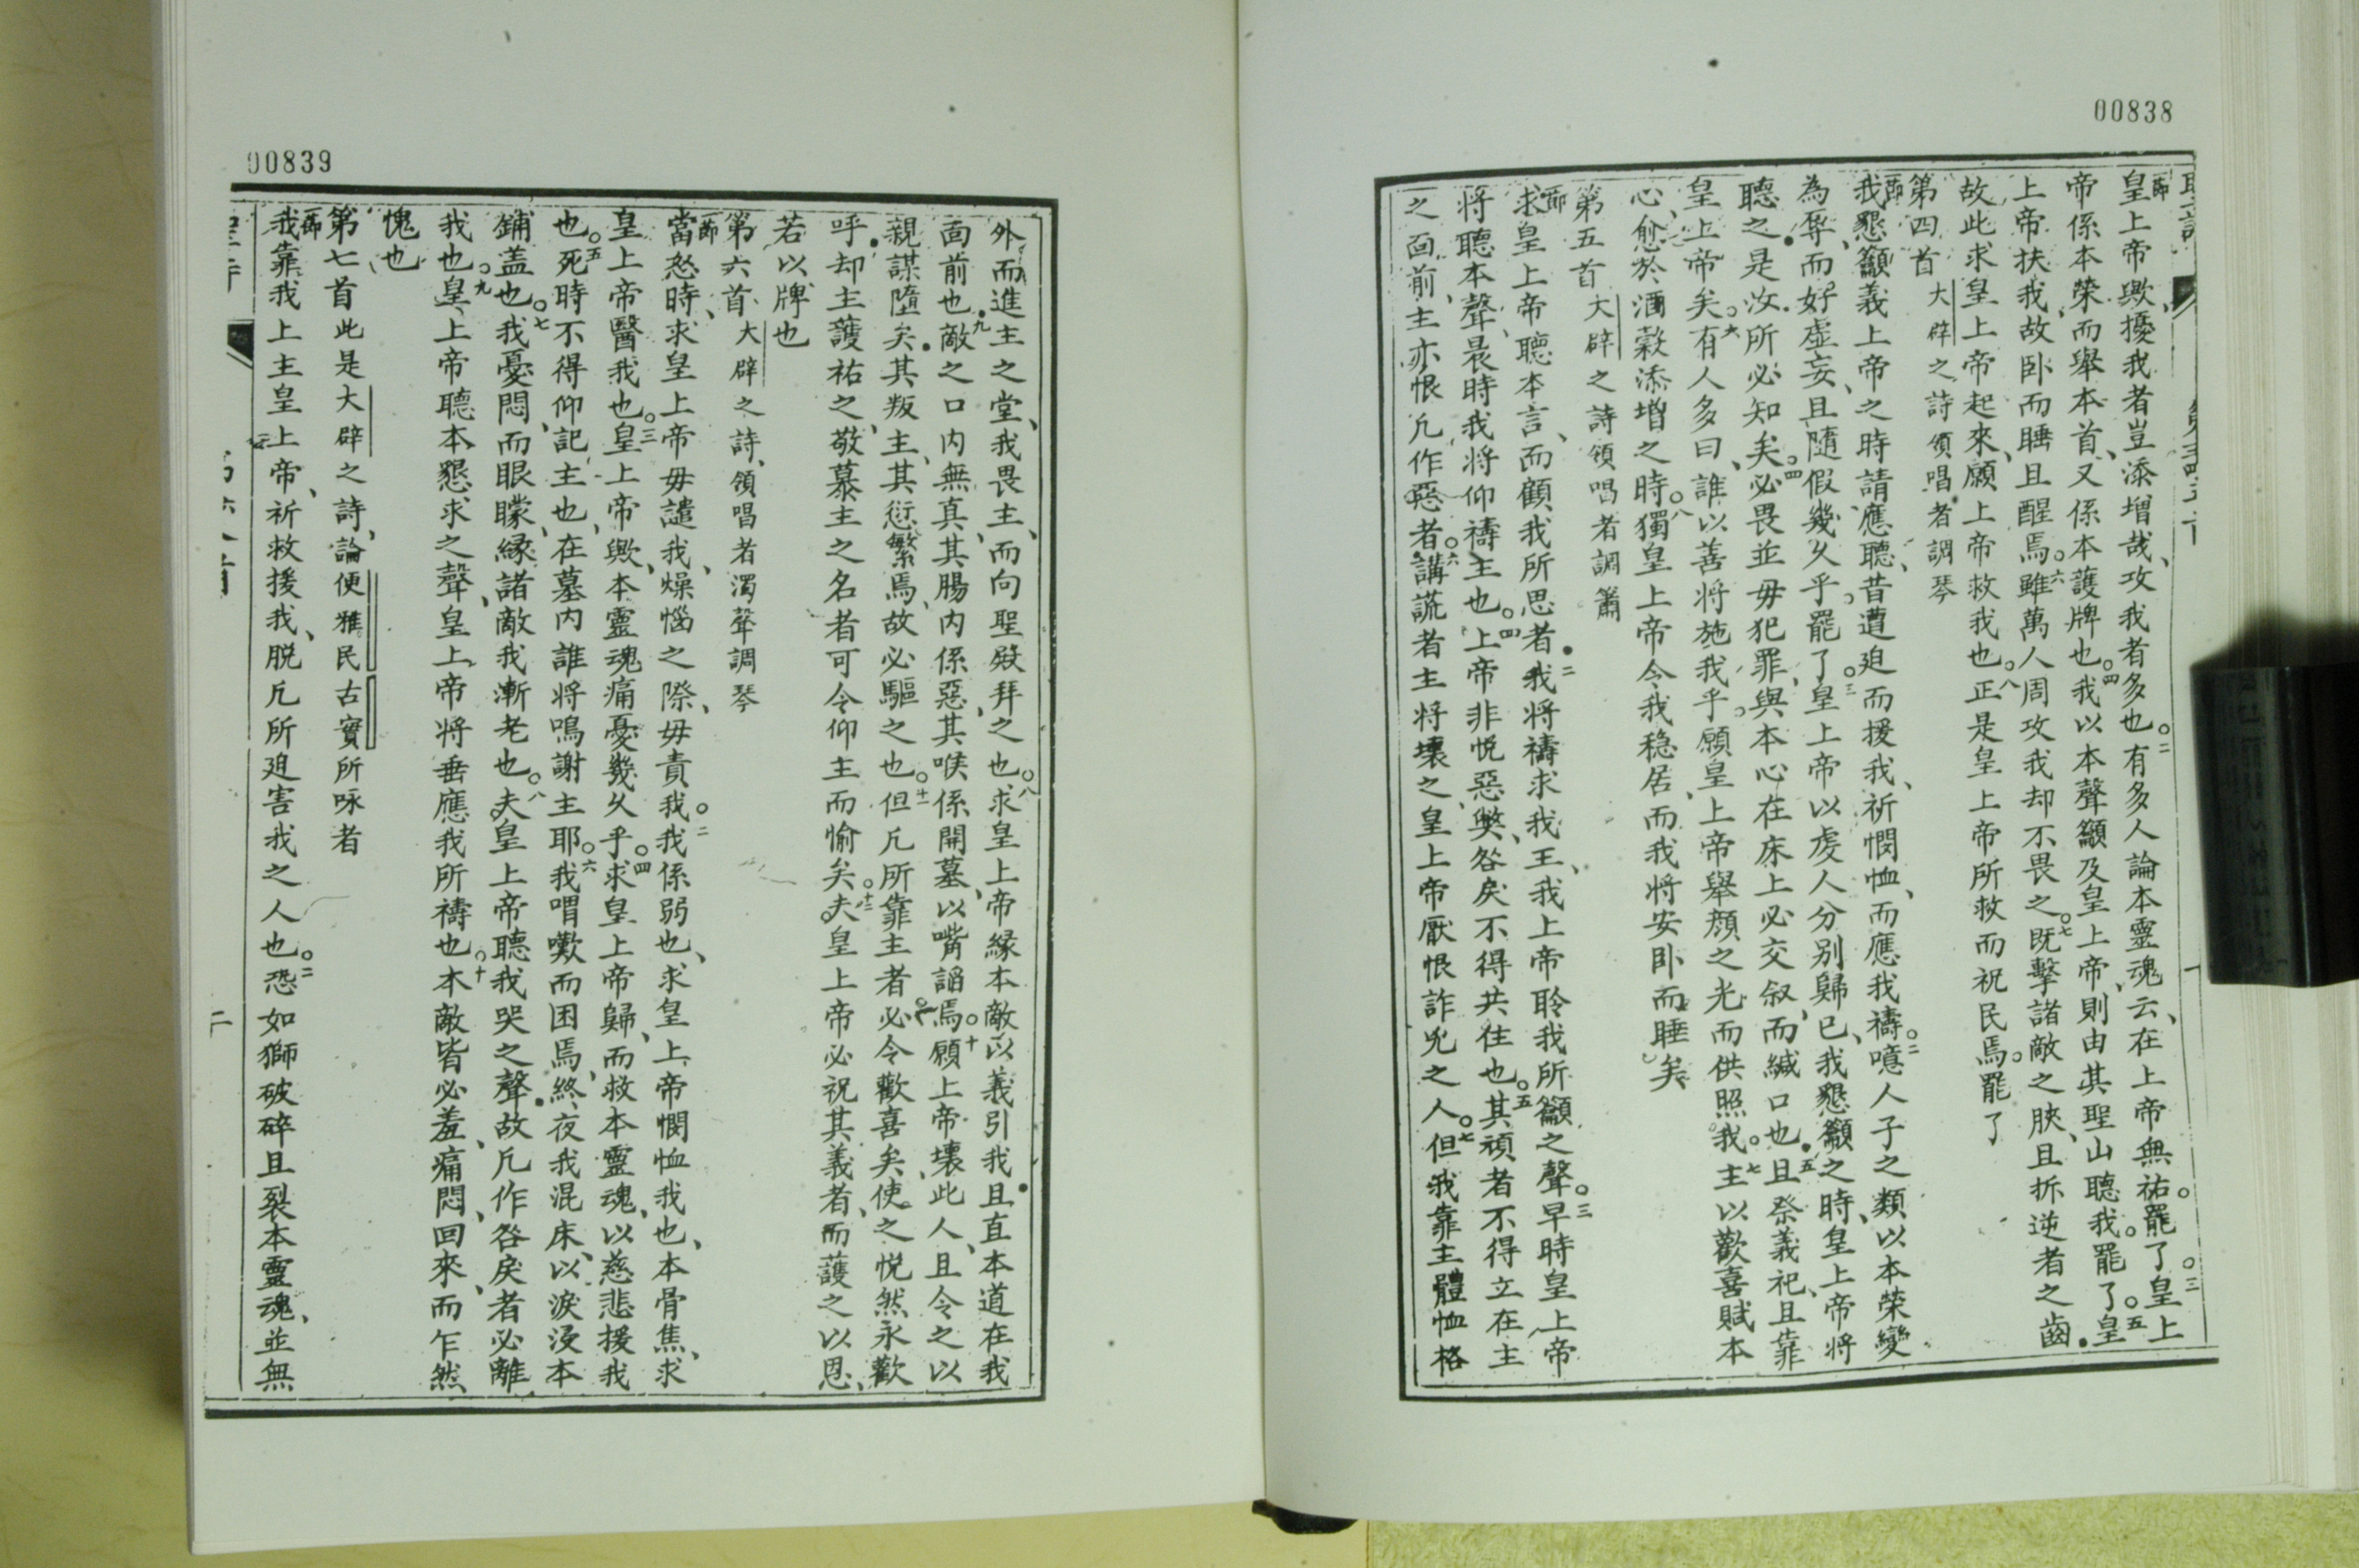 00838
皇上帝歟、擾我者豈添增哉、攻我者多也。二有多人論本靈魂云、在上帝無祐。罷了。三皇上
帝係本榮、而舉本首、又係本護牌也。四我以本聲籲及皇上帝、則由其聖山聽我。罷了。五皇
上帝扶我、故卧而睡且醒焉。六雖萬人周攻我、却不畏之。七既擊諸敵之腴、且拆逆者之齒。
故此求皇上帝起來、願上帝救我也。八正是皇上帝所救而祝民焉。罷了
第四首 大辟之詩領唱者調琴
我懇籲義上帝之時請應聽、昔遭迫而援我、祈憫恤、而應我禱。二噫人子之類以本榮變
為辱、而好虛妄、且隨假幾久乎。罷了。三皇上帝以虔人分別歸已、我懇籲之時、皇上帝將
聽之、是汝所必知矣。四必畏並毋犯罪與本心在床上必交叙、而緘口也。五且祭義祀、且靠
皇上帝矣。六有人多曰、誰以善將施我乎。願皇上帝舉顔之光而供照我。七主以歡喜賦本
心、愈於酒穀添增之時。八獨皇上帝令我穩居、而我將安卧而睡矣
第五首 大辟之詩領唱者調簫
求皇上帝聽本言、而顧我所思者。二我將禱求我王、我上帝聆我所籲之聲。三早時皇上帝
將聽本聲、晨時我將仰禱主也。四上帝非悦惡獘、咎戾不得共住也。五其頑者不得立在主
之面前、主亦恨凡作惡者。六講謊者主將壞之、皇上帝厭恨詐兇之人。七但我靠主體恤格
00839
外而進主之堂、我畏主、而向聖殿拜之也。八求皇上帝緣本敵以義引我、且直本道在我
面前也。九敵之口内無真、其腸内係惡、其喉係開墓、以嘴謟焉。十願上帝壞此人、且令之以
親謀墮矣。其叛主、其愆繁焉、故必驅之也。十一但凡所靠主者必令歡喜矣、使之悦然永歡
呼、却主護祐之、敬慕主之名者可令仰主而愉矣。十二夫皇上帝必祝其義者、而護之以恩、
若以牌也
第六首 大辟之詩、領唱者濁聲調琴
當怒時、求皇上帝毋譴我、燥惱之際、毋責我。二我係弱也、求皇上帝憫恤我也、本骨焦、求
皇上帝醫我也。三皇上帝歟、本靈魂痛憂幾久乎。四求皇上帝歸、而救本靈魂、以慈悲援我
也。五死時不得仰記主也、在墓内誰將鳴謝主耶。六我喟嘆而困焉、終夜我混床、以淚浸本
鋪盖也。七我憂悶、而眼矇、緣諸敵我漸老也。八夫皇上帝聽我哭之聲、故凡作咎戾者必離
我也。九皇上帝聽本懇求之聲、皇上帝將垂應我所禱也。十本敵皆必羞、痛悶、回來、而乍然
愧也
第七首 此是大辟之詩、論便雅民古實所咏者
我靠我上主皇上帝、祈救援我、脱凡所迫害我之人也。二恐如獅破碎且裂本靈魂、並無